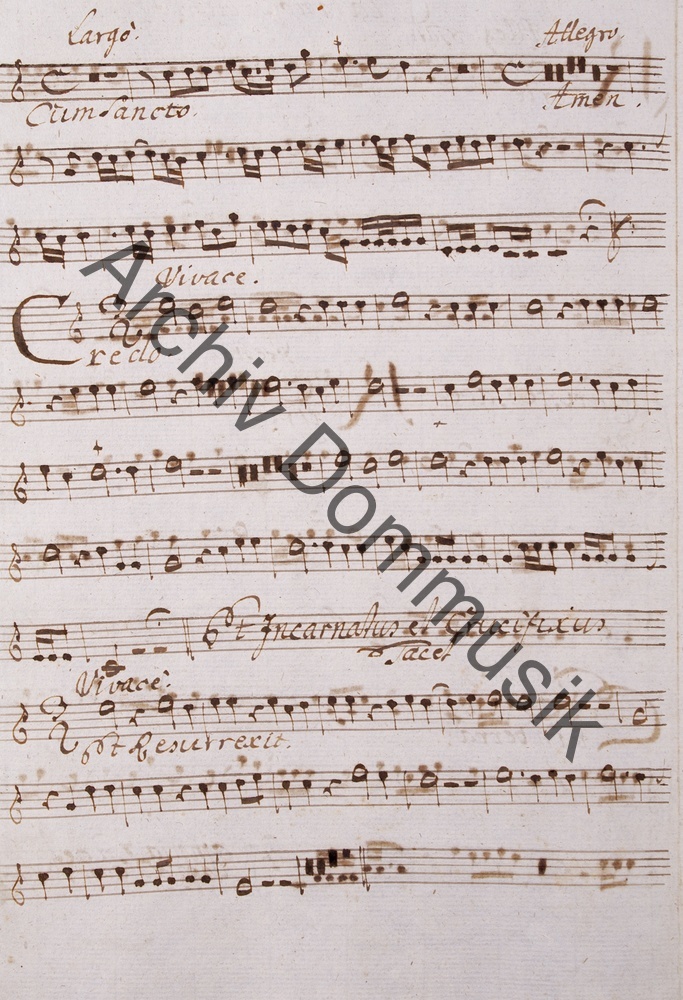 Largo. Allegro.
Cum Sancto. Amen.
Vivace.
Credo
Et Incarnatus et Crucifixus
Tacet
Vivace.
Et Resurrexit.
Archiv Dommusik